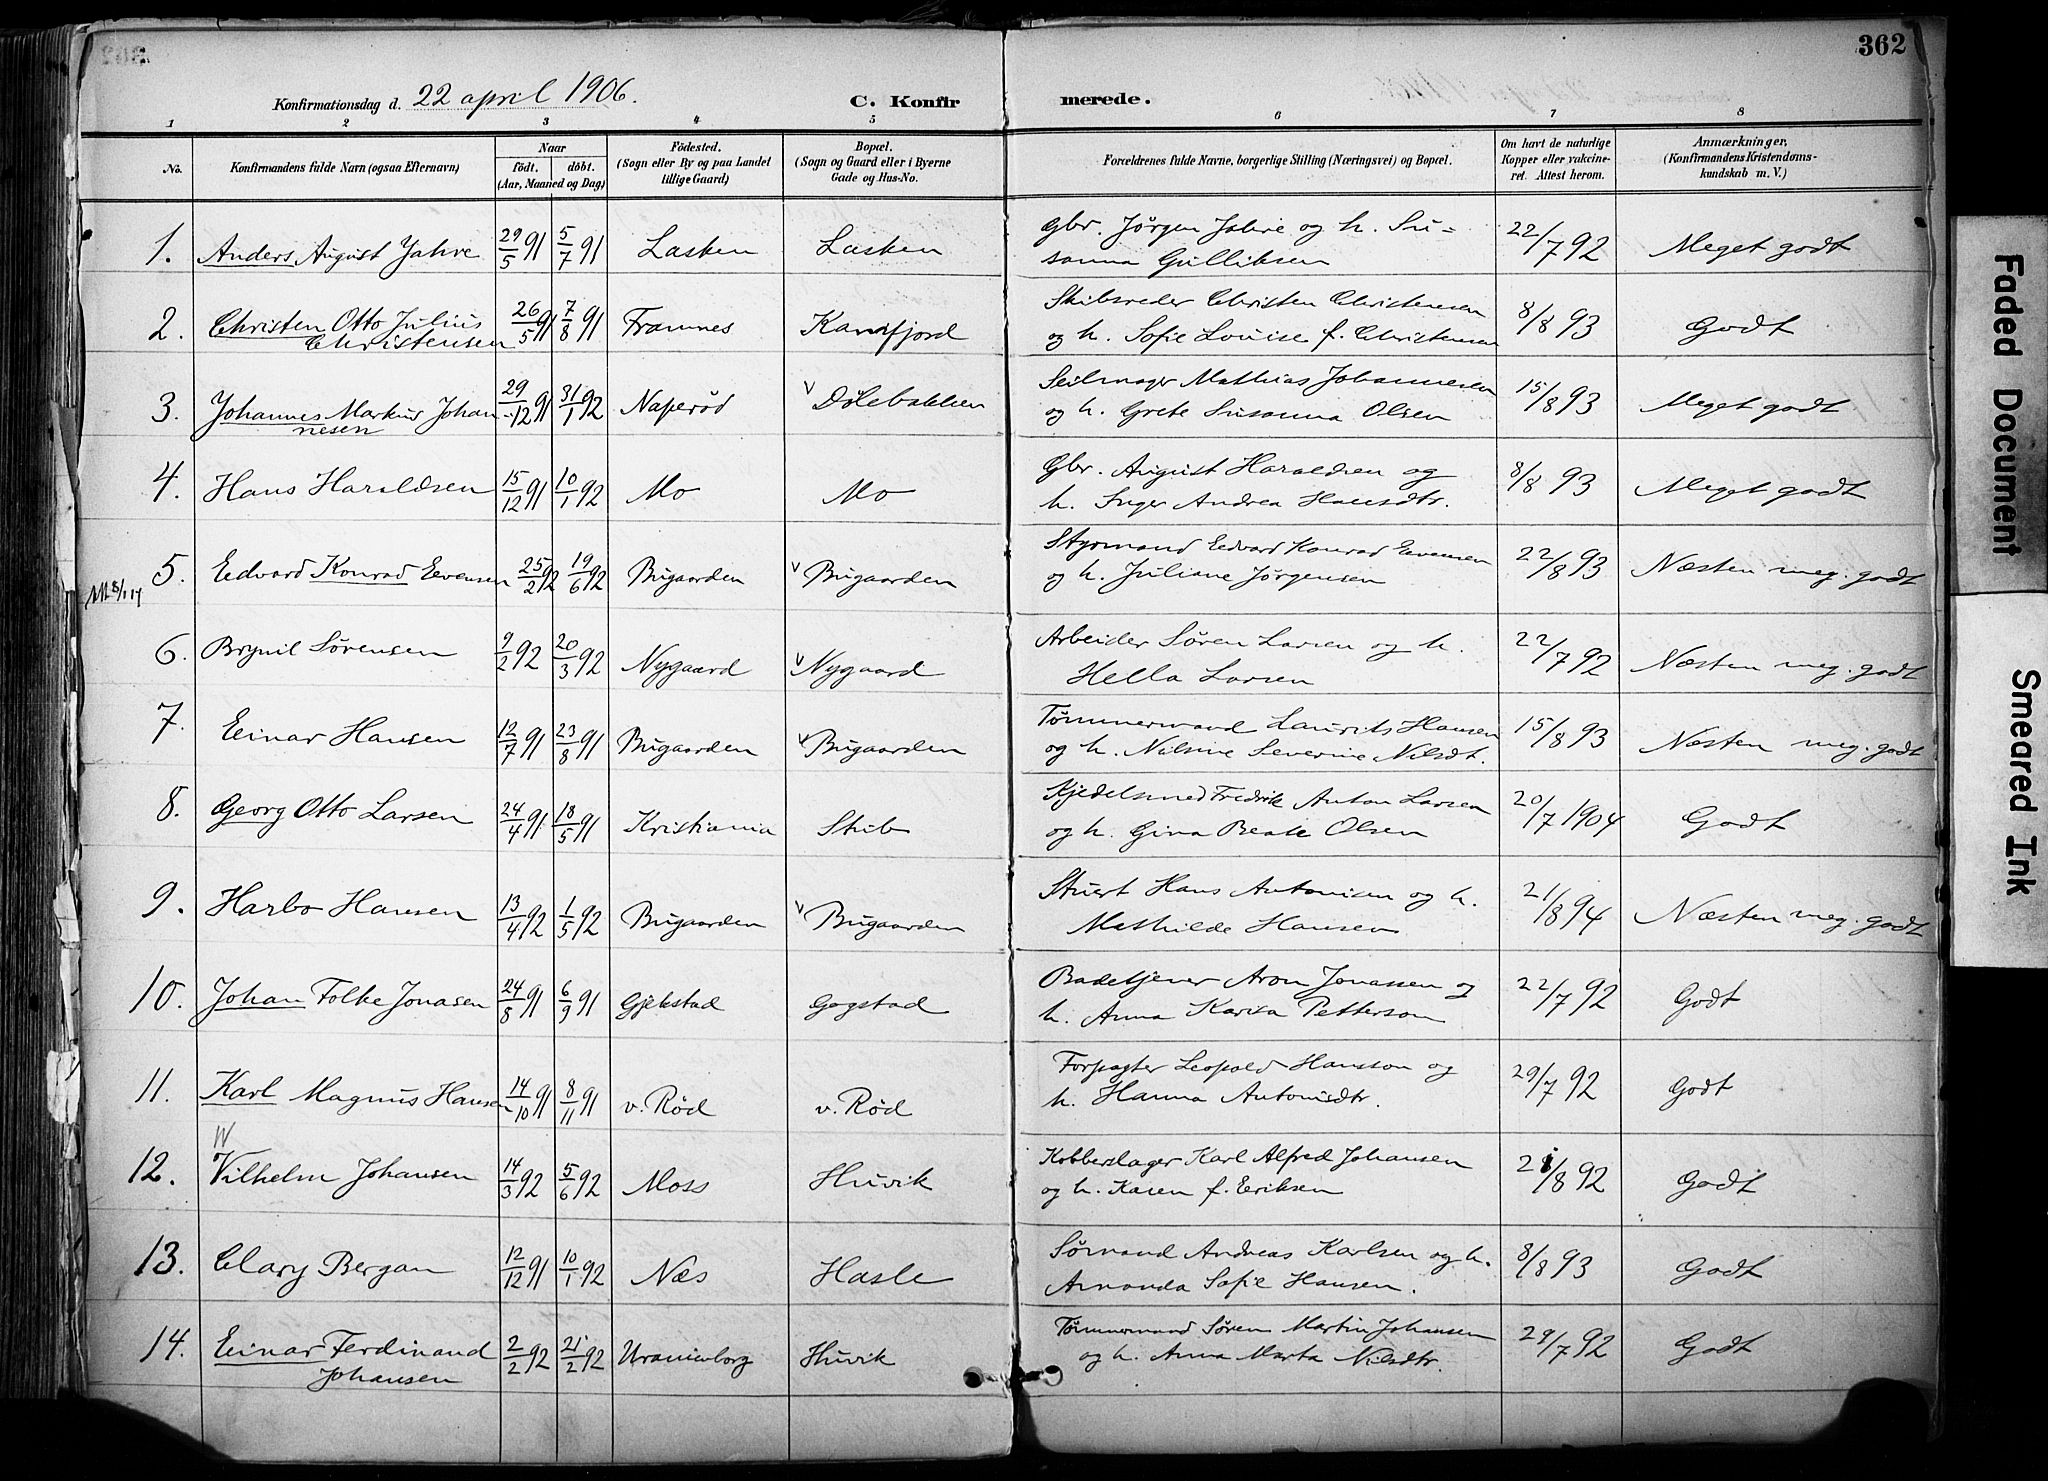 362
Konfirmationsdag d. 22 april 1906.
C. Konfirmerede.
1 2 3 4 5 6 7 8
No.
Konfirmandens fulde Navn (ogsaa Efternavn)
Naar
födt. döbt.
(Aar, Maaned og Dag)
Födested.
(Sogn eller By og paa Landet
tillige Gaard)
Bopæl.
(Sogn og Gaard eller i Byerne
Gade og Hus-No.
Forældrenes fulde Navne, borgerlige Stilling (Næringsvei) og Bopæl.
Om havt de naturlige
Kopper eller vakcine-
ret. Attest herom.
Anmærkninger.
(Konfirmandens Kristendoms-
kundskab m. V.)
1. Anders August Jahre 29/5 91 5/7 91 Lasken Lasken Gbr. Jørgen Jahre og h. Su=
sanna Gulliksen 22/7 92 Meget godt
2. Christen Otto Julius
Christensen 26/5 91 7/8 91 Framnes Kamfjord Skibsreder Christen Christensen
og h. Sofie Louise f. Christensen 8/8 93 Godt
3. Johannes Markus Johan-
nesen 29/12 91 31/1 92 Naperød v Dølebakken Seilmager Mathias Johannesen
og h. Grete Susanna Olsen 15/8 93 Meget godt
4. Hans Haraldsen 15/12 91 10/1 92 Mo Mo Gbr. August Haraldsen og
h. Inger Andrea Hansdtr. 8/8 93 Meget godt
5. Edvard Konrad Evensen 25/2 92 19/6 92 Bugaarden v Bugaarden Styrmand Edvard Konrad Evensen
og h. Juliane Jørgensen 22/8 93 Næsten meg. godt
6. Brynil Sørensen 9/2 92 20/3 92 Nygaard v Nygaard Arbeider Søren Larsen og h.
Hella Larsen 22/7 92 Næsten meg. godt
7. Einar Hansen 12/7 91 23/8 91 Bugaarden v Bugaarden Tømmermand Laurits Hansen
og h. Nilsine Severine Nilsdt. 15/8 93 Næsten meg. godt
8. Georg Otto Larsen 24/4 91 18/5 91 Kristiania Stub Kjedelsmed Fredrik Anton Larsen
og h. Gina Beate Olsen 20/7 1904 Godt
9. Harbo Hansen 13/4 92 1/5 92 Bugaarden v Bugaarden Stuert Hans Antonisen og h.
Mathilde Hansen 21/8 94 Næsten meg. godt
10. Johan Folke Jonasen 24/8 91 6/9 91 Gjekstad Gogstad Badetjener Aron Jonassen og
h. Anna Karisa Petterson 22/7 92 Godt
11. Karl Magnus Hansen 14/10 91 8/11 91 v. Rød v. Rød Forpagter Leopold Hansson og
h. Hanna Antonisdtr. 29/7 92 Godt
W
12. Vilhelm Johansen 14/3 92 5/6 92 Moss Huvik Kobberslager Karl Alfred Johansen
og h. Karen f. Eriksen 21/8 92 Godt
13. Clary Bergan 12/12 91 10/1 92 Næs Hasle Sømand Andreas Karlsen og h.
Amanda Sofie Hansen. 8/8 93 Godt
14. Einar Ferdinand
Johansen 2/2 92 21/2 92 Uranienborg Huvik Tømmermand Søren Martin Johansen
og h. Anna Marta Nilsdtr. 29/7 92 Godt
Faded Document
Smeared Ink